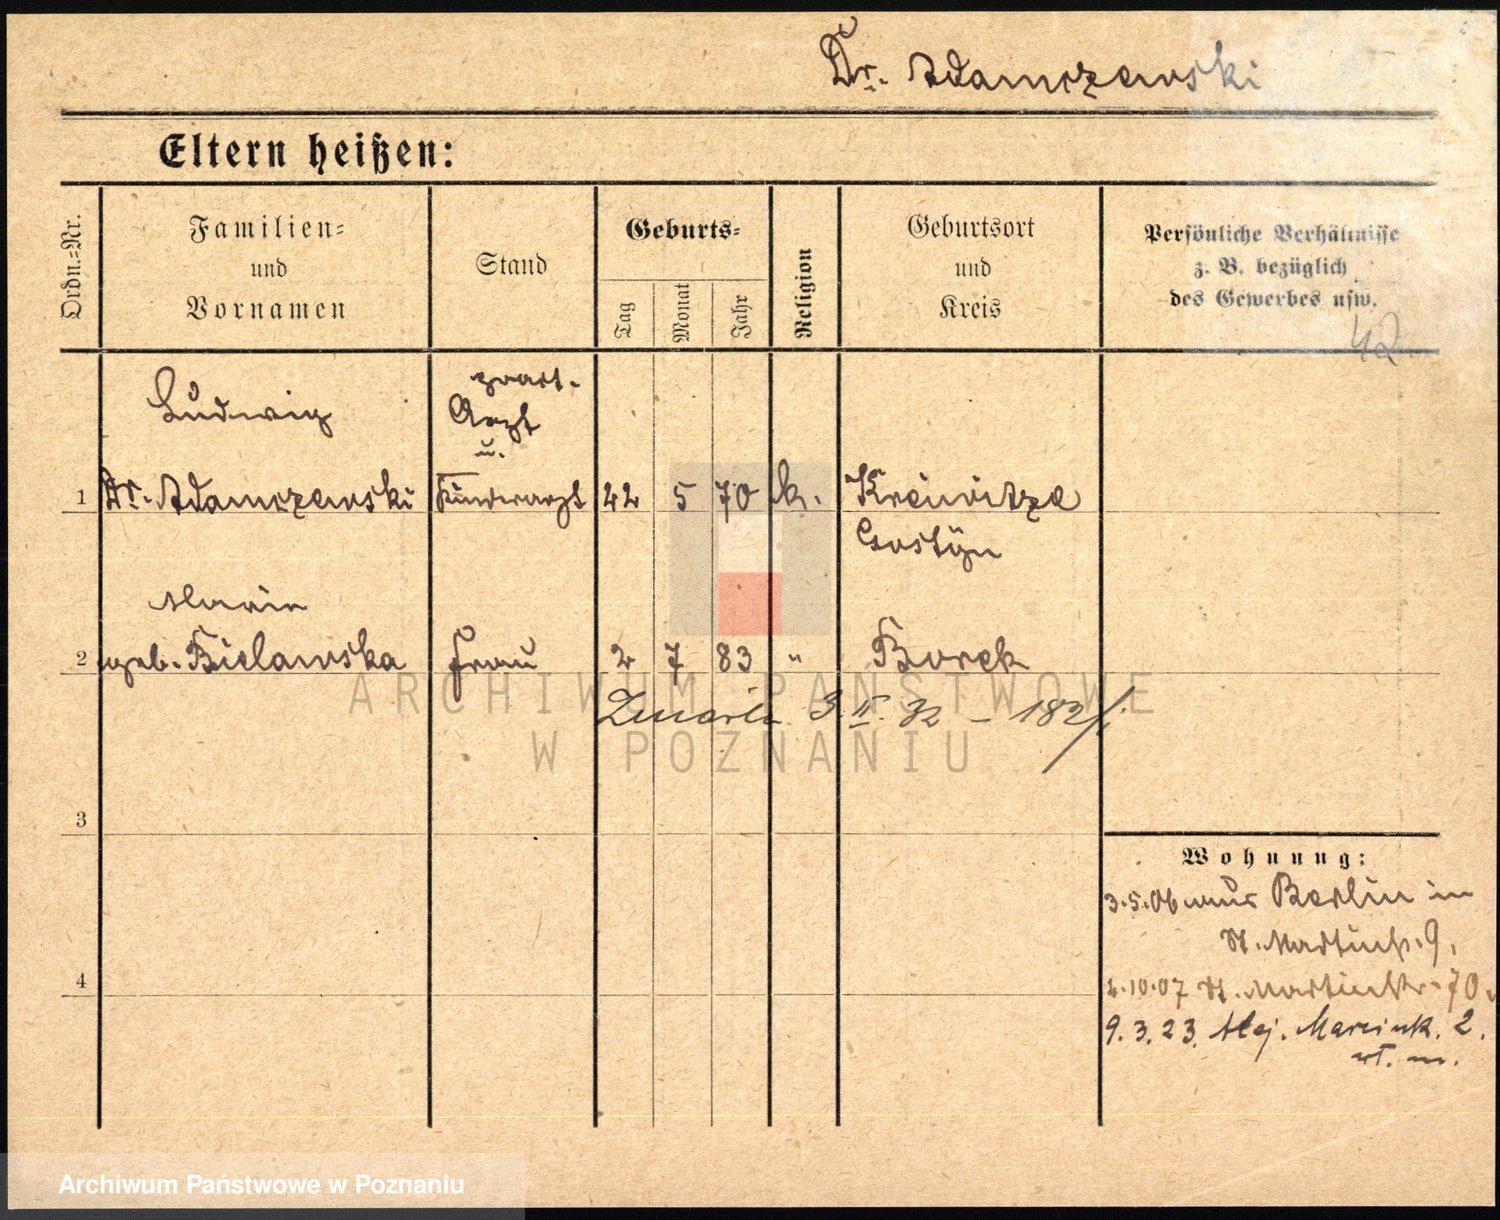 Dr. Adamczewski
Eltern heißen:
Ordn.-Nr.
Familien-
und
Vornamen
Stand
Geburts-
Tag
Monat
Jahr
Religion
Geburtsort
und
Kreis
Persönliche Verhältnisse
z. B. bezüglich
des Gewerbes usw.
42
Ludwig
pract.
Arzt
u.
1 Dr. Adamczewski Kinderarzt 22 5 70 k.
Gostyn
Maria
2 geb. Bielawska Frau 2 7 83 " Borek
Zmarła 3 II. 32 –
3
4
Wohnung:
3.5.06 aus Berlin in
St. Martinstr. 9.
2.10.07 St. Martinstr. 70.
9.3.23. Alej. Marcink. 2.
ARCHIWUM PAŃSTWOWE
W POZNANIU
Archiwum Państwowe w Poznaniu